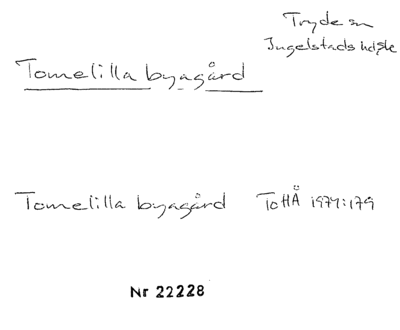 Tryde sn
Ingelstads hd, sk
Tomelilla byagård
Tomelilla byagård ToHÅ 1974:179
Nr 22228